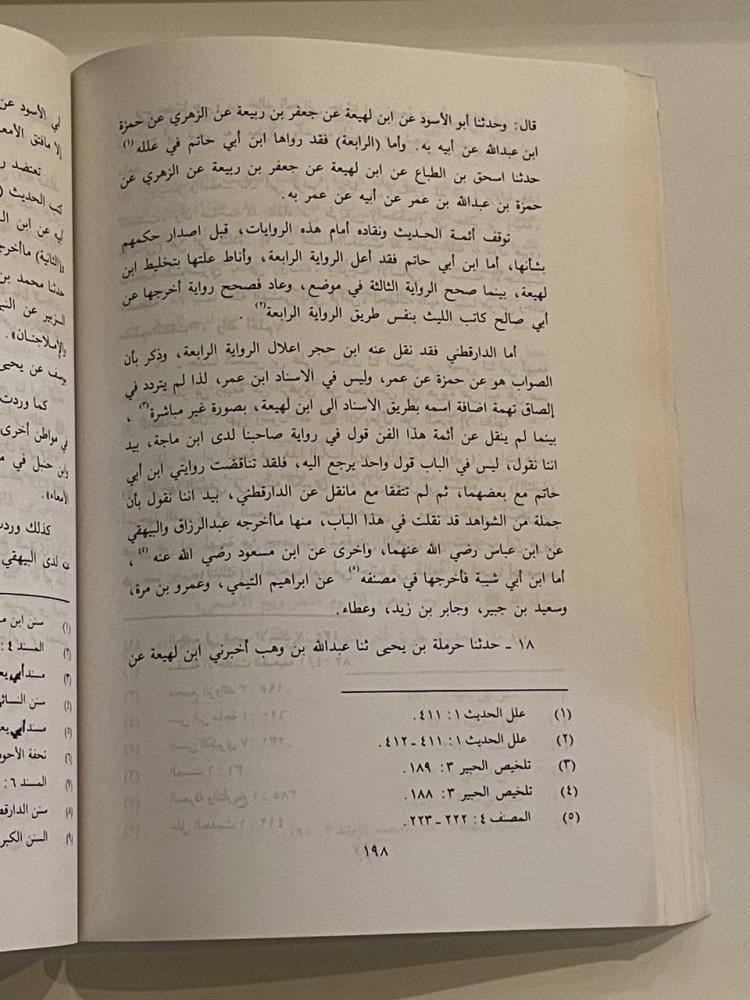 قال: وحدثنا أبو الأسود عن ابن لهيعة عن جعفر بن ربيعة عن الزهري عن حمزة
ابن عبدالله عن أبيه به. وأما (الرابعة) فقد رواها ابن أبي حاتم في علله(١)
حدثنا اسحق بن الطباع عن ابن لهيعة عن جعفر بن ربيعة عن الزهري عن
حمزة بن عبدالله بن عمر عن أبيه عن عمر به.
توقف أئمة الحديث ونقاده أمام هذه الروايات، قبل اصدار حكمهم
بشأنها، أما ابن أبي حاتم فقد أعل الرواية الرابعة، وأناط علتها بتخليط ابن
لهيعة، بينما صحح الرواية الثالثة في موضع، وعاد فصحح رواية أخرجها عن
أبي صالح كاتب الليث بنفس طريق الرواية الرابعة(٢).
أما الدارقطني فقد نقل عنه ابن حجر اعلال الرواية الرابعة، وذكر بأن
الصواب هو عن حمزة عن عمر، وليس في الاسناد ابن عمر، لذا لم يتردد في
إلصاق تهمة اضافة اسمه بطريق الاسناد الى ابن لهيعة، بصورة غير مباشرة(٣)،
بينما لم ينقل عن أئمة هذا الفن قول في رواية صاحبنا لدى ابن ماجة، بيد
اننا نقول، ليس في الباب قول واحد يرجع اليه، فلقد تناقضت روايتي ابن أبي
حاتم مع بعضهما، ثم لم تتفقا مع مانقل عن الدارقطني، بيد اننا نقول بأن
جملة من الشواهد قد نقلت في هذا الباب، منها ماأخرجه عبدالرزاق والبيهقي
عن ابن عباس رضي الله عنهما، واخرى عن ابن مسعود رضي الله عنه(٤)،
أما ابن أبي شيبة فأخرجها في مصنفه(٥) عن ابراهيم التيمي، وعمرو بن مرة،
وسعيد بن جبير، وجابر بن زيد، وعطاء.
١٨ - حدثنا حرملة بن يحيى ثنا عبدالله بن وهب أخبرني ابن لهيعة عن
(١) علل الحديث ١: ٤١١.
(٢) علل الحديث ١: ٤١١-٤١٢.
(٣) تلخيص الحبير ٣: ١٨٩.
(٤) تلخيص الحبير ٣: ١٨٨.
(٥) المصنف ٤: ٢٢٢-٢٢٣.
١٩٨
أبي الأسود عن
إلا مافتق الأمعا
تعتضد ر
كتب الحديث (
و(الثانية) ماأخرج
حدثنا محمد بن
الزبير عن النبي
والإملاجتان».
يوسف عن يحيى
كما وردت
في مواطن أخرى
وابن حنبل في م
الأمعاء».
كذلك وردت
لدى البيهقي
(١) سنن ابن م
(٢) المسند ٤:
(٣) مسند أبي يع
(٤) سنن النسائي
(٥) مسند أبي يع
(٦) تحفة الأحو
(٧) المسند ٦:
(٨) سنن الدارقط
(٩) السنن الكبر